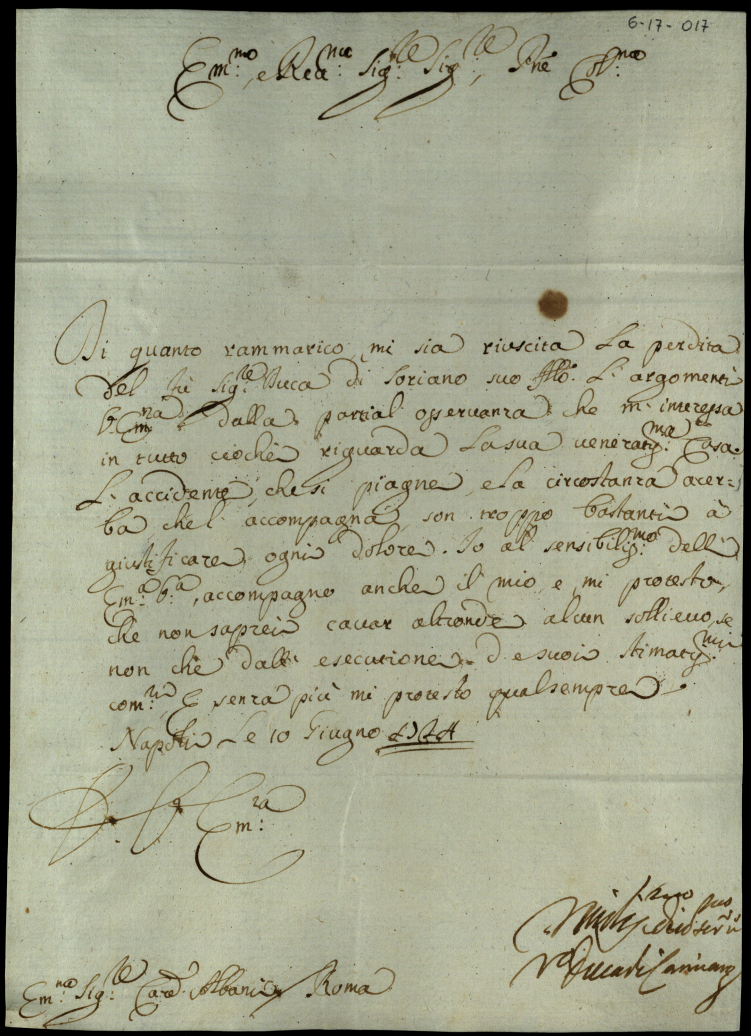 6-17-017
Em.mo, e Rev.mo Sig.re Sig.re, Pne
Di quanto rammarico mi sia riuscita la perdita
del fù Sig.re Duca di Soriano suo L'argomenti
V. Em.za dalla partial osservanza, che m'interessa
in tutto ciochè riguarda la sua veneratiss.ma Casa.
L'accidente, che si piagne, e la circostanza acer-
ba che l'accompagna, son troppo bastanti à
giustificare ogni dolore. Io al sensibiliss.mo dell'
Em.a V.a, accompagno anche il mio, e mi protesto,
che non saprei cavar altronde alcun sollievo, se
non che dall'esecutione de suoi stimatiss.mi
com.di E senza più mi protesto qual sempre
Napoli le 10 Giugno 1724
Em.za
Em.mo Sig.re Card. Albani Roma